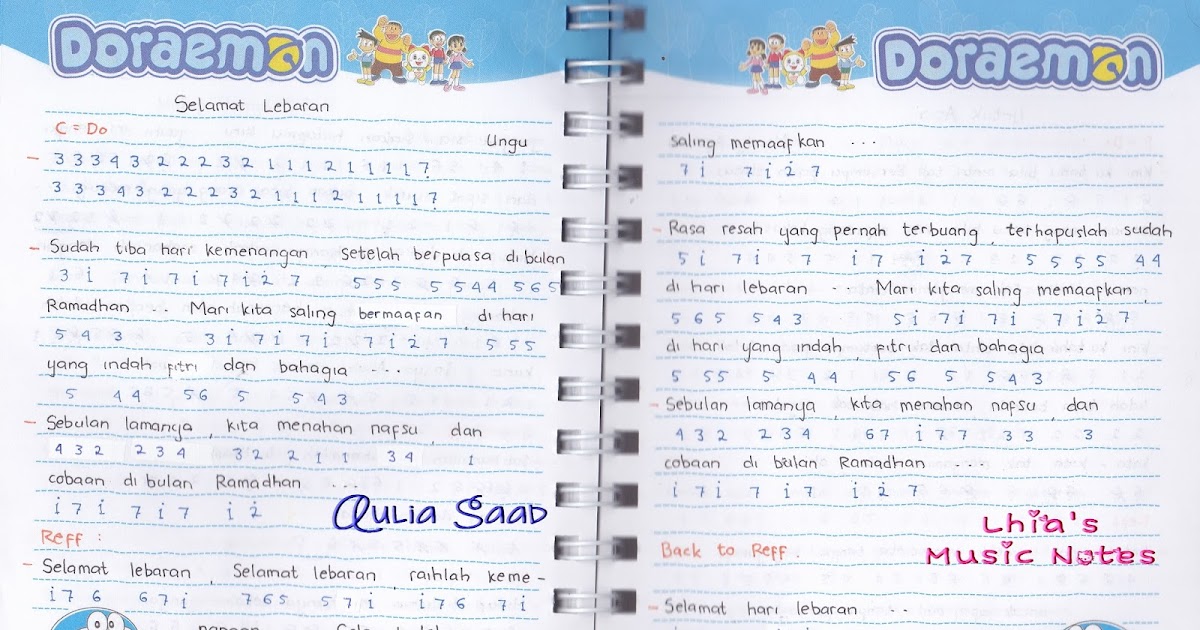 Doraemon
Selamat Lebaran
C = Do
Ungu
- 3 3 3 4 3 2 2 2 3 2 1 1 1 2 1 1 1 1 7̣
3 3 3 4 3 2 2 2 3 2 1 1 1 2 1 1 1 1 7̣
- Sudah tiba hari kemenangan , setelah berpuasa di bulan
3 1̇ 7 1̇ 7 1̇ 7 1̇ 2̇ 7 5 5 5 5 5 4 4 5 6 5
Ramadhan ... Mari kita saling bermaafan , di hari
5 4 3 3 1̇ 7 1̇ 7 1̇ 7 1̇ 2̇ 7 5 5 5
yang indah fitri dan bahagia ...
5 4 4 5 6 5 5 4 3
- Sebulan lamanya , kita menahan nafsu , dan
4 3 2 2 3 4 3 2 2 1 1 3 4 1
cobaan di bulan Ramadhan ...
1̇ 7 1̇ 7 1̇ 7 1̇ 2̇
Aulia Saad
Reff :
- Selamat lebaran , Selamat lebaran , raihlah keme -
1̇ 7 6 6 7 1̇ 7 6 5 5 7 1̇ 1̇ 7 6 7 1̇
Doraemon
saling memaafkan ...
7 1̇ 7 1̇ 2̇ 7
- Rasa resah yang pernah terbuang , terhapuslah sudah
5 1̇ 7 1̇ 7 1̇ 7 1̇ 2̇ 7 5 5 5 5 4 4
di hari lebaran ... Mari kita saling memaafkan ,
5 6 5 5 4 3 5 1̇ 7 1̇ 7 1̇ 7 1̇ 2̇ 7
di hari yang indah , fitri dan bahagia ...
5 5 5 5 4 4 5 6 5 5 4 3
- Sebulan lamanya , kita menahan nafsu , dan
4 3 2 2 3 4 6 7 1̇ 7 7 3 3 3
cobaan di bulan Ramadhan ...
1̇ 7 1̇ 7 1̇ 7 1̇ 2̇ 7
Lhia's
Music Notes
Back to Reff .
- Selamat hari lebaran ...